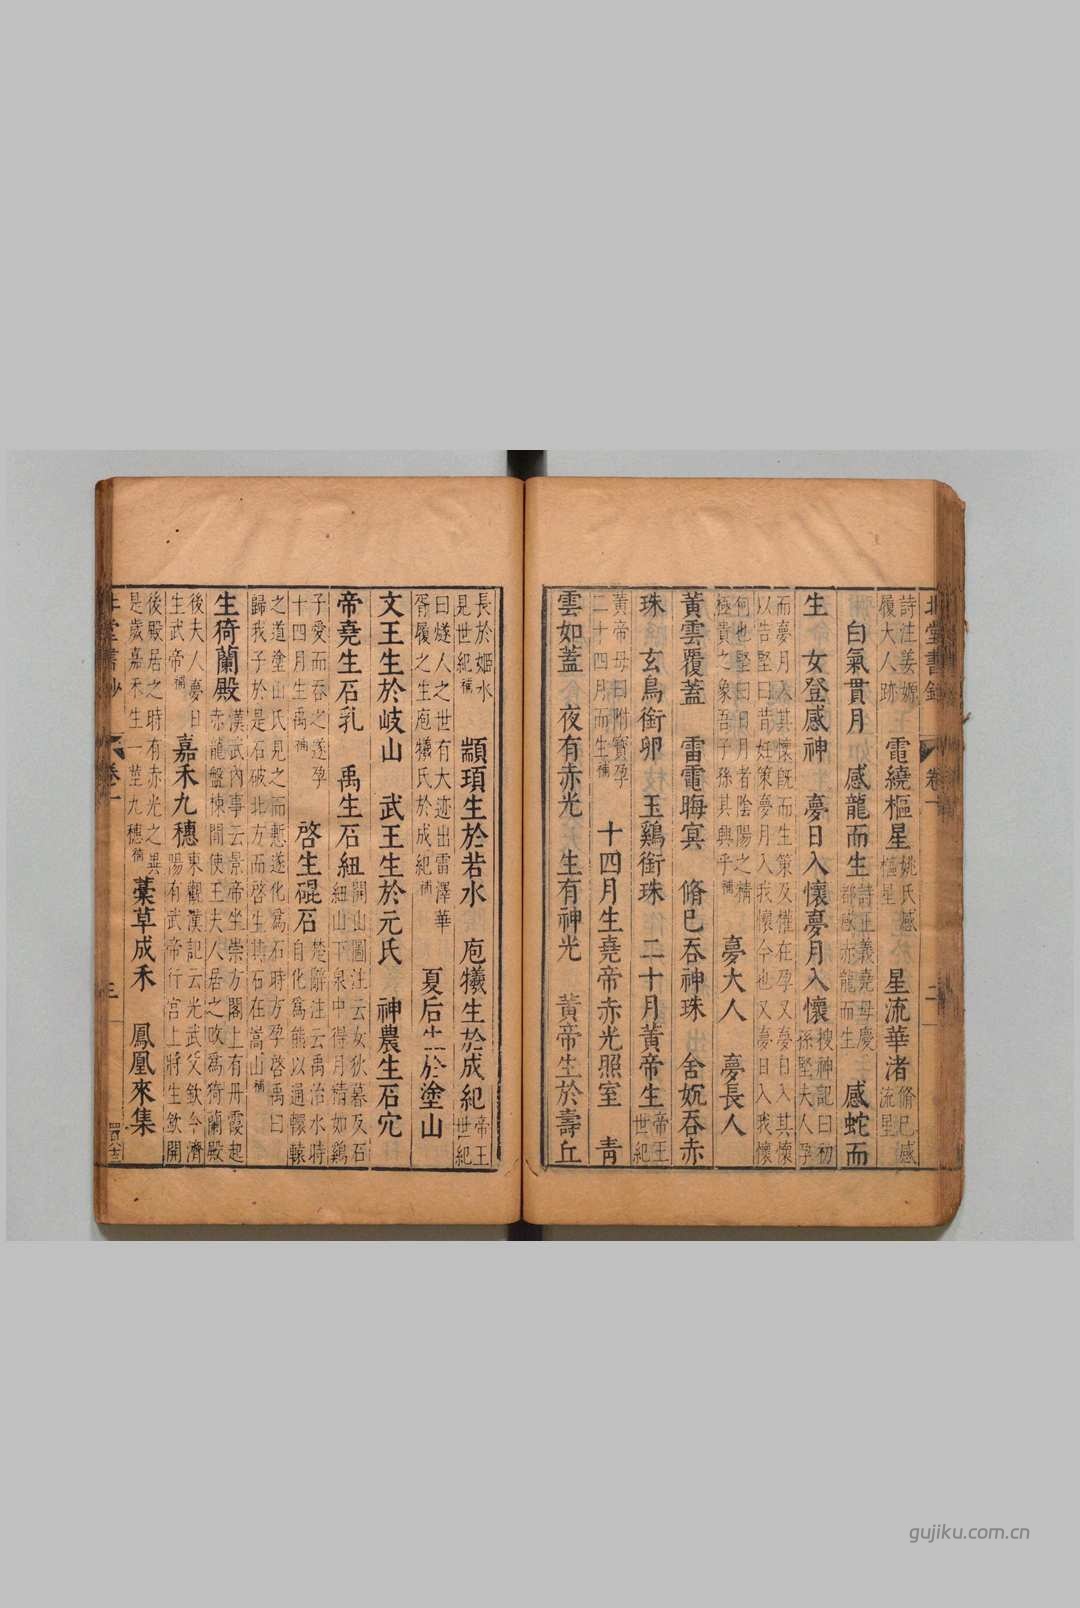 北堂書鈔 卷一 二
詩注姜嫄履大人跡 電繞樞星 姚氏感樞星 星流華渚 脩已感流星
白氣貫月 感龍而生 詩正義堯母慶都感赤龍而生 感蛇而
生 女登感神 夢日入懷夢月入懷 搜神記曰初孫堅夫人孕
而夢月入其懷既而生策及權在孕又夢日入其懷以告堅曰昔妊策夢月入我懷今也又夢日入我懷
何也堅曰日月者陰陽之精極貴之象吾子孫其興乎 補 夢大人 夢長人
黃雲覆蓋 雷電晦冥 脩巳吞神珠 含㚾吞赤
珠 玄鳥銜卵 玉鷄銜珠 二十月黃帝生 帝王世紀
黃帝母曰附寶孕二十四月而生 補 十四月生堯帝赤光照室 青
雲如蓋 夜有赤光 生有神光 黃帝生於壽丘
長於姬水見世紀 補 顓頊生於若水 庖犧生於成紀 帝王世紀
曰燧人之世有大迹出雷澤華胥履之生庖犧氏於成紀 補 夏后生於塗山
文王生於岐山 武王生於元氏 神農生石穴
帝堯生石乳 禹生石紐 開山圖注云女狄暮及石紐山下泉中得月精如鷄
子愛而吞之遂孕十四月生禹 補 啓生磆石 楚辭注云禹治水時自化爲熊以通轘轅
之道塗山氏見之而慙遂化爲石時方孕啓禹曰歸我子於是石破北方而啓生其石在嵩山 補
生猗蘭殿 漢武內事云景帝坐崇方閣上有丹霞起赤龍盤棟間使王夫人居之改爲猗蘭殿
後夫人夢日生武帝 補 嘉禾九穗 東觀漢記云光武父欽令濟陽有武帝行宮上將生欽開
後殿居之時有赤光之異是歲嘉禾生一莖九穗 補 藁草成禾 鳳凰來集
卷一 三
gujiku.com.cn